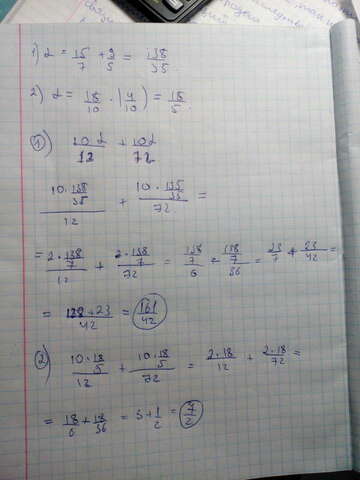 1) α = 15/7 + 9/5 = 138/35
2) α = 18/10 · (4/10) = 18/5
1) 10α/12 + 10α/72
(10·138/35)/12 + (10·135/35)/72 =
= (2·138/7)/12 + (2·138/7)/72 = (138/7)/6 + (138/7)/36 = 23/7 + 23/42 =
= 138+23/42 = 161/42
2) (10·18/5)/12 + (10·18/5)/72 = 2·18/12 + 2·18/72 =
= 18/6 + 18/36 = 3 + 1/2 = 7/2